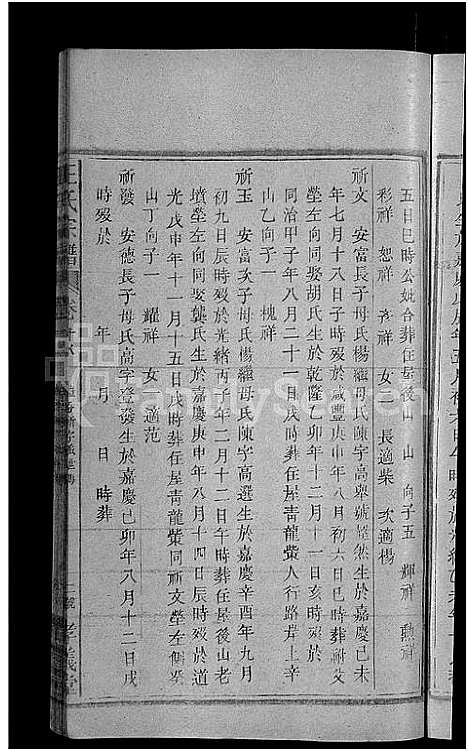 五日巳時公妣合葬在屋後山 山 向子五 輝祥 勲祥
彩祥 恕祥 祥 女二 長適柴 次適楊
祈文 安富長子母氏楊繼母氏陳字高舉號怪然生於嘉慶己未
年七月十八日子時歿於咸豐庚申年八月初六日巳時葬祔父
塋左向同娶胡氏生於乾隆乙卯年十二月十一日亥時歿於
同治甲子年八月二十一日戌時葬在屋青龍塋人行路岸上辛
山乙向子一 槐祥
祈玉 安富次子母氏楊繼母氏陳字高選生於嘉慶辛酉年九月
初九日辰時歿於光緒丙子年二月十二日午時葬在屋後山老
墳塋左向同娶龔氏生於嘉慶庚申年八月十四日辰時歿於道
光戊申年十一月十五日戌時葬在屋青龍塋同祈文塋左側癸
山丁向子一 耀祥 女一適范
祈發 安德長子母氏高字登發生於嘉慶己卯年八月十二日戌
時歿於 年 月 日 時葬
王氏宗譜 卷
FamilySearch